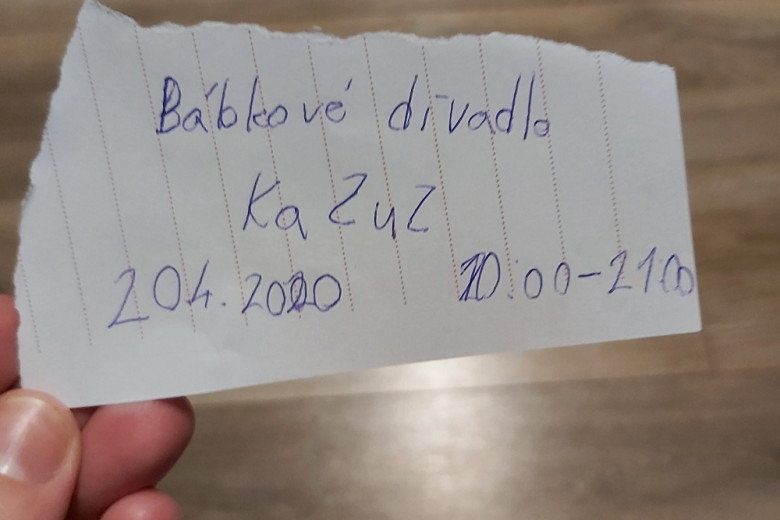 Bábkové divadlo
Ka ZuZ
204.2020 20:00-21:00